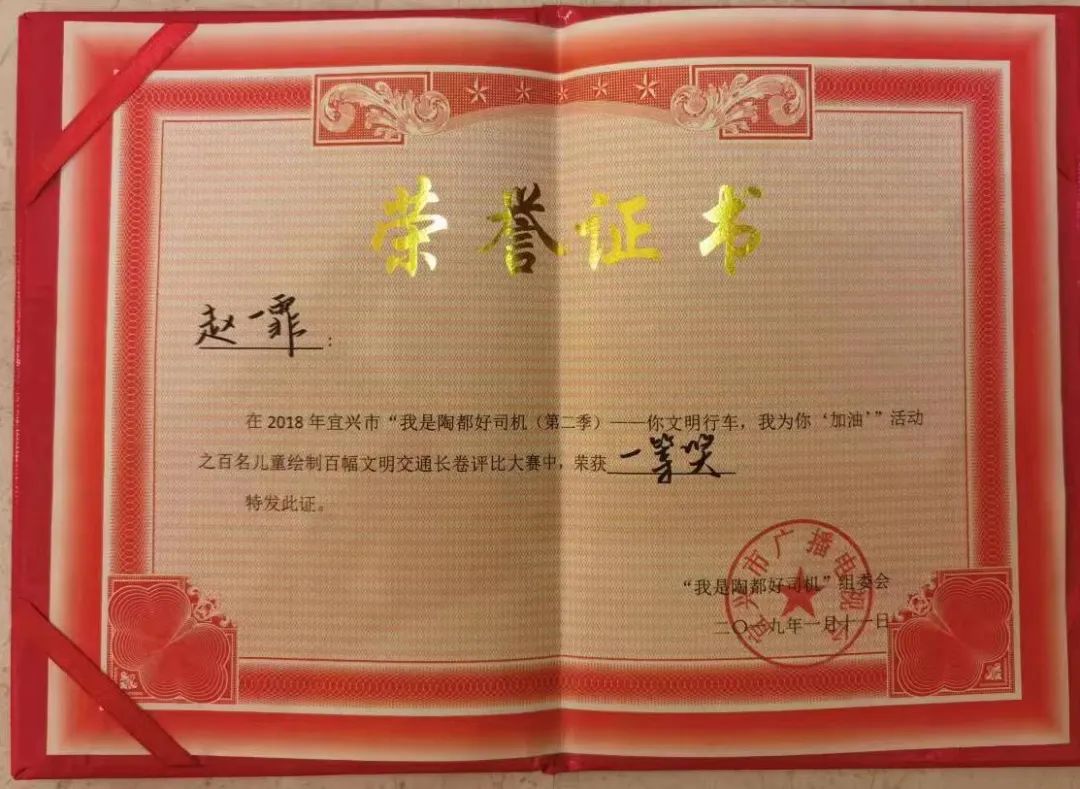 荣誉证书
赵一霏：
在2018年宜兴市“我是陶都好司机（第二季）——你文明行车，我为你‘加油’”活动
之百名儿童绘制百幅文明交通长卷评比大赛中，荣获一等奖
特发此证。
“我是陶都好司机”组委会
二〇一九年一月十一日
宜兴市广播电视台